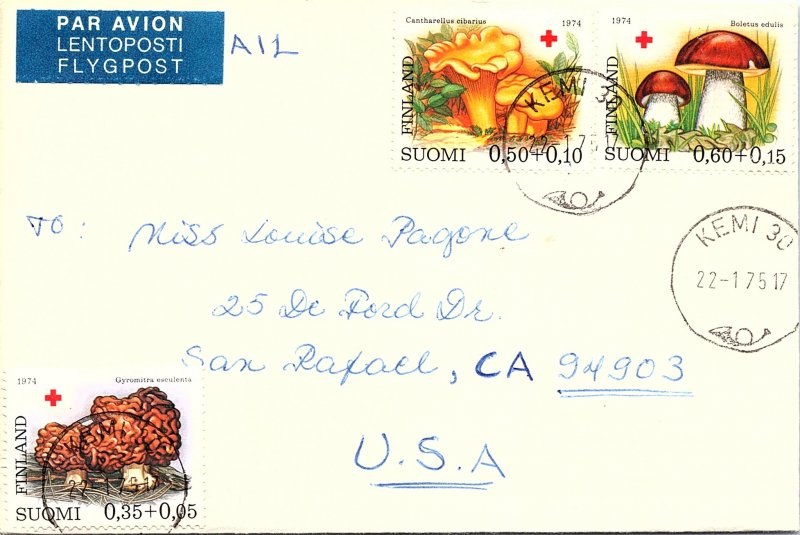 PAR AVION
LENTOPOSTI
FLYGPOST
AIL
Cantharellus cibarius 1974
FINLAND
SUOMI 0,50+0,10
1974 Boletus edulis
FINLAND
SUOMI 0,60+0,15
KEMI 30
22-1.75.17
TO: Miss Louise Pagone
25 De Ford Dr.
San Rafael, CA 94903
U.S.A
KEMI 30
22-1.75.17
1974 Gyromitra esculenta
FINLAND
SUOMI 0,35+0,05
KEMI 30
22-1.75.17